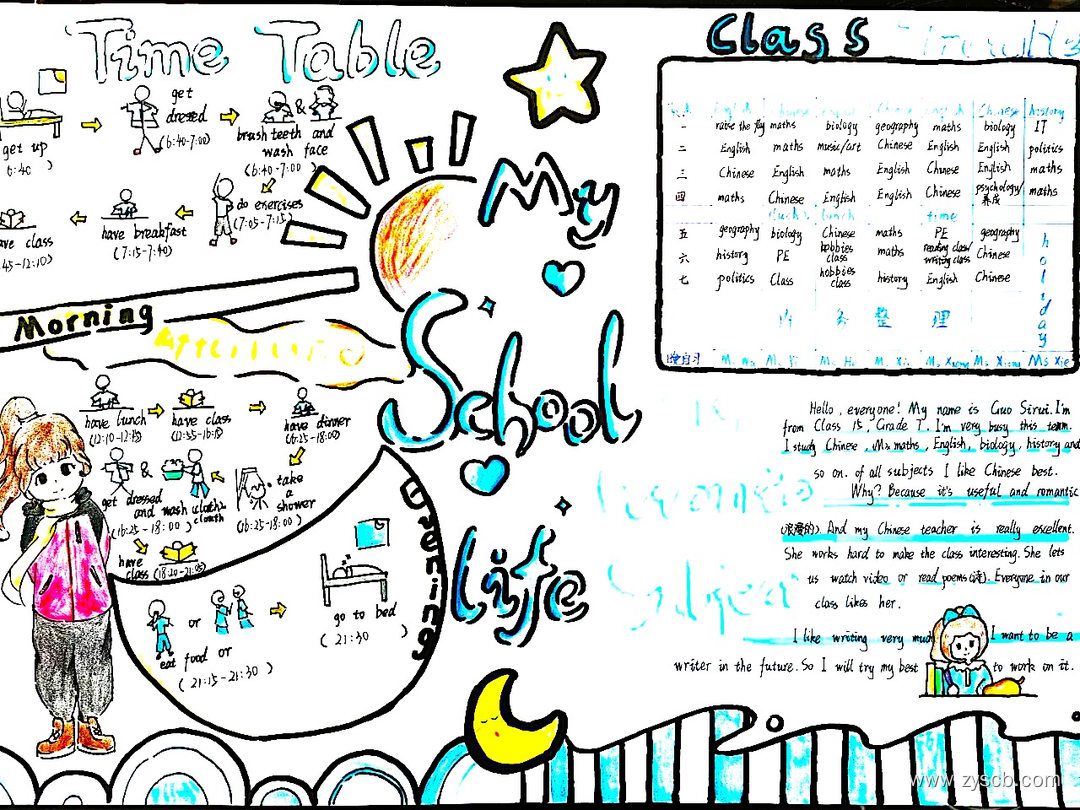 Time Table
get
dressed
(6:40-7:00)
get up
6:40 )
brush teeth and
wash face
(6:40-7:00 )
do exercises
(7:05-7:15)
have breakfast
(7:15-7:40)
ave class
45-12:10)
Morning
have lunch
(12:10-12:45)
have class
have dinner
(16:25-18:00)
take
a
shower
(16:25-18:00 )
&
get dressed
and wash cloth
(16:25-18:00 )
have
class (18:20-21:05)
or
eat food or
( 21:15-21:30 )
go to bed
( 21:30 )
Evening
My
School
life
Class
English Chinese history
一 raise the flag maths biology geography maths biology IT
二 English maths music/art Chinese English English politics
三 Chinese English maths English Chinese English maths
四 maths Chinese English English Chinese psychology/ maths
lunch time
五 geography biology Chinese maths PE geography
六 history PE hobbies class maths reading class/ writing class Chinese
七 politics Class hobbies class history English Chinese
holiday
整 理
Ms Xie
Hello, everyone! My name is Guo Sirui. I'm
from Class 15, Grade 7. I'm very busy this team.
I study Chinese, maths, English, biology, history and
so on. of all subjects I like Chinese best.
Why? Because it's useful and romantic
(浪漫的). And my Chinese teacher is really escellent.
She works hard to make the class interesting. She lets
us watch video or read poems(诗). Everyone in our
class likes her.
I like writing very much I want to be a
writer in the future. So I will try my best to work on it.
Subject
www.zyscb.com